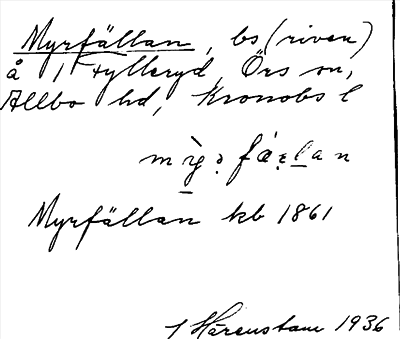 Myrfällan, bs (riven)
å 1 Hylleryd, Örs sn,
Allbo hd, Kronobs l
Myrfällan kb 1861
J Hårenstam 1936